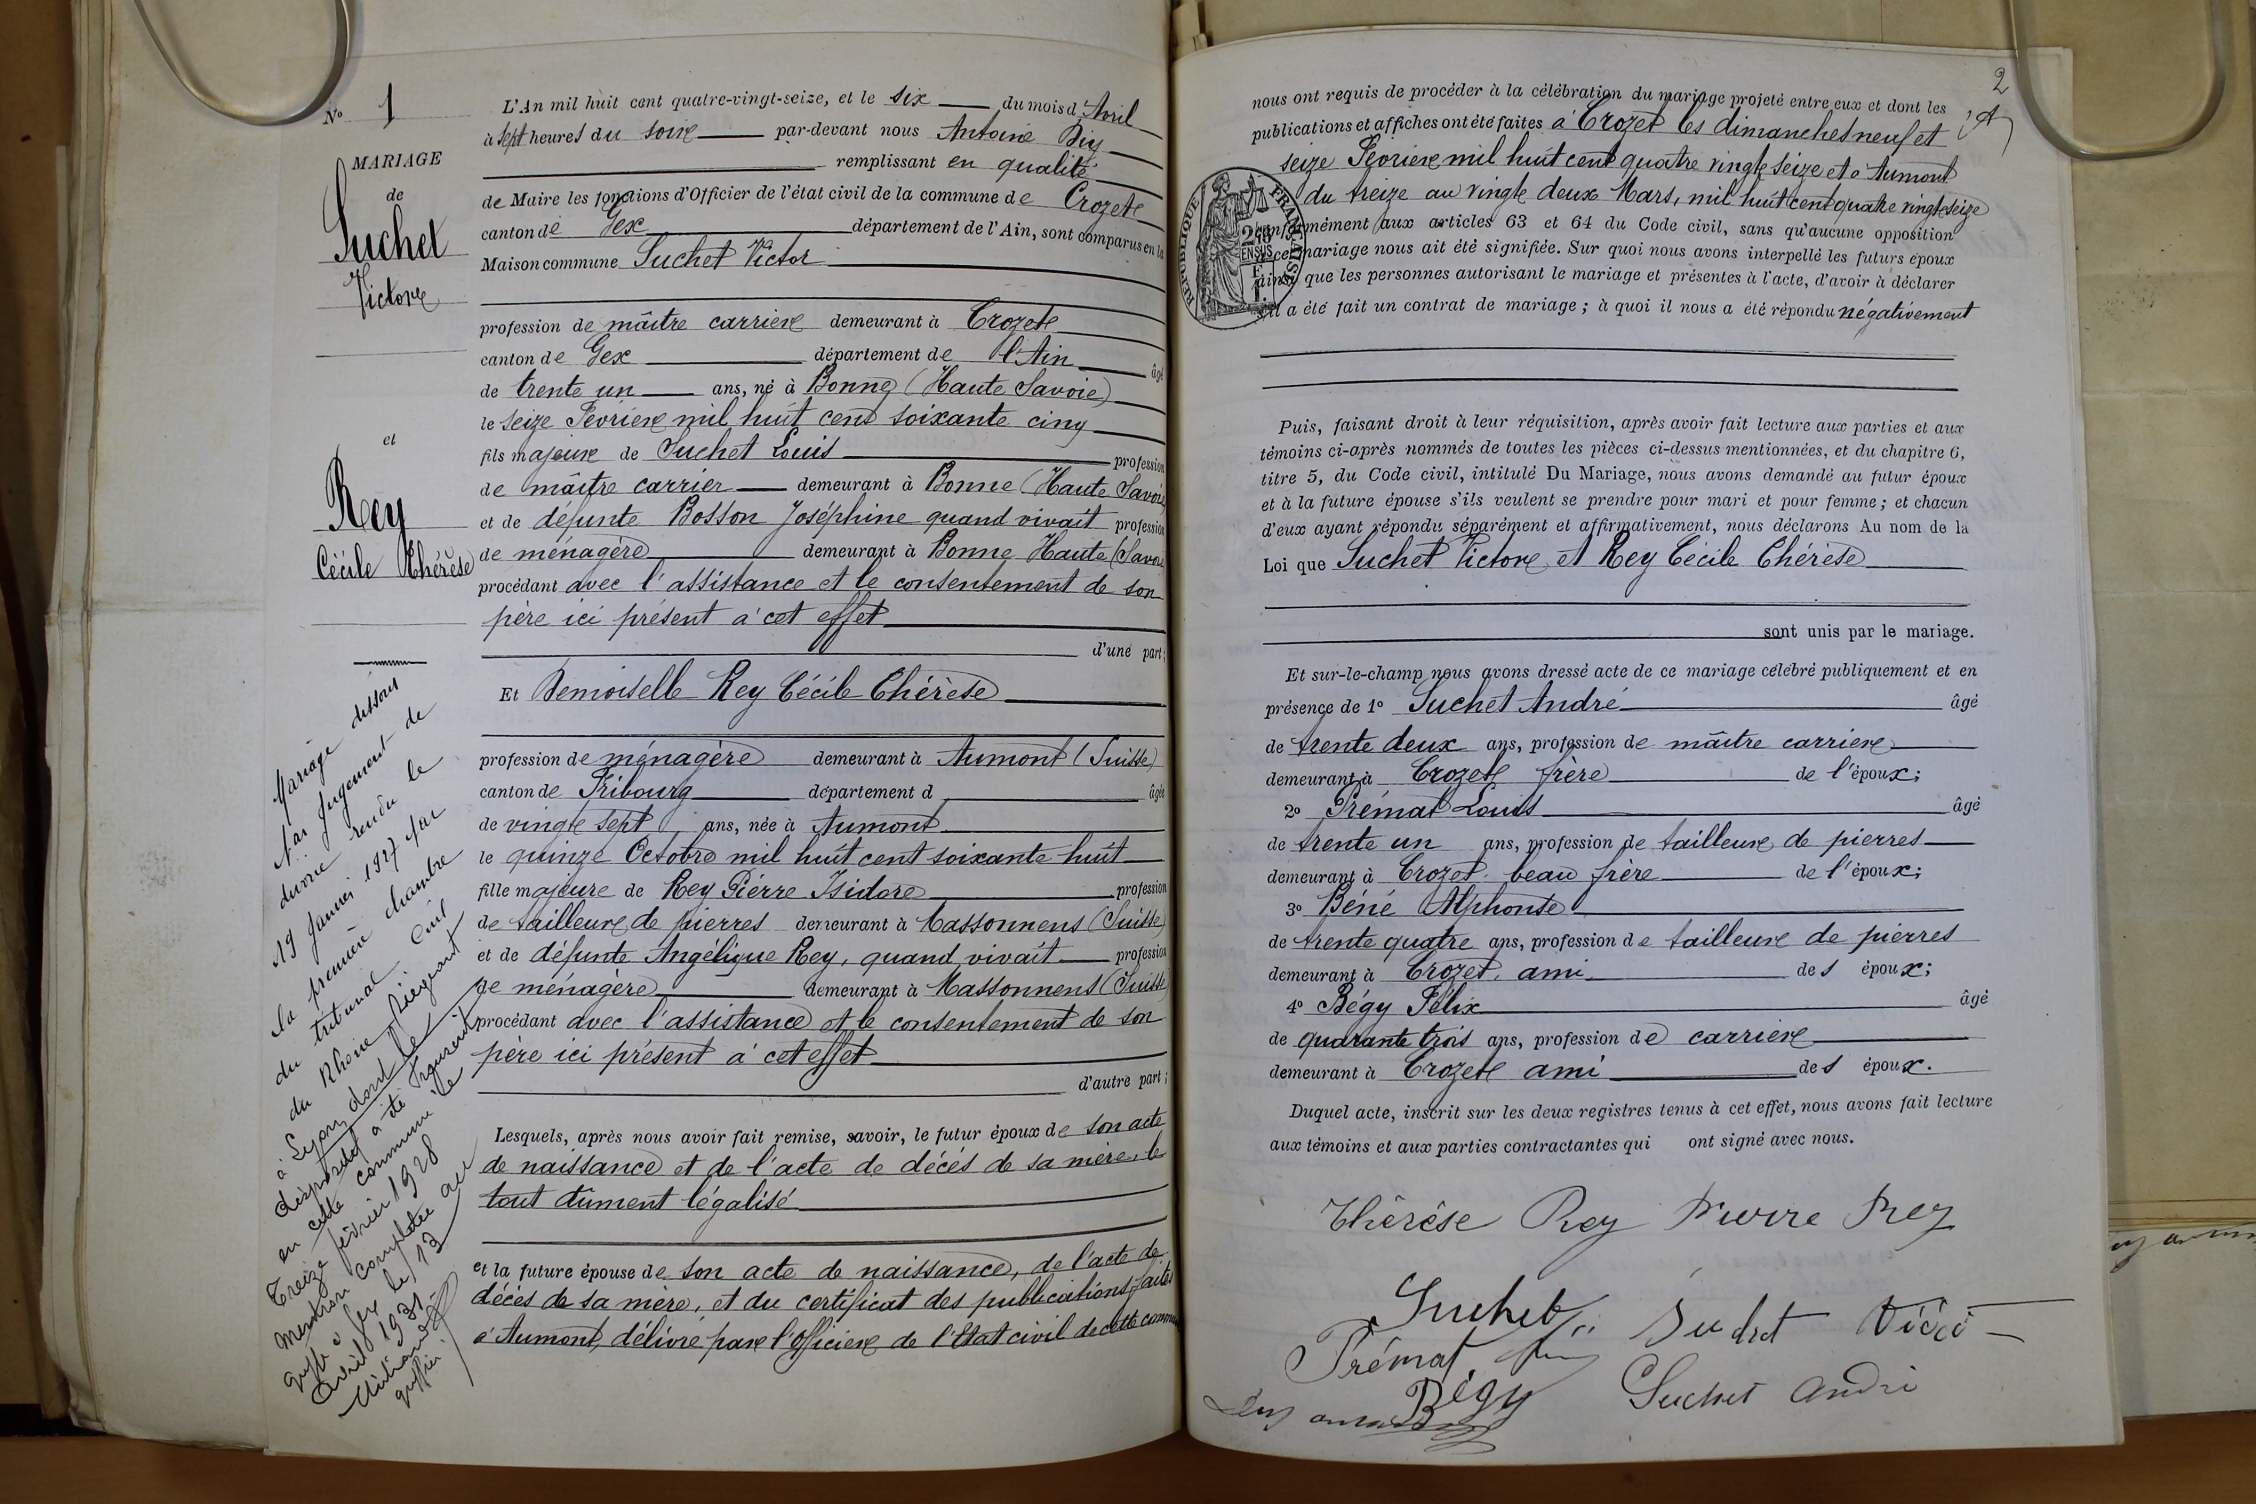 No 1
MARIAGE
de
Suchet
Victor
et
Rey
Cécile Thérèse
Mariage dissous
par jugement de
divorce rendu le
19 janvier 1927 par
la première chambre
du tribunal civil
du Rhône siégeant
à Lyon, dont le
dispositif a été transcrit
en cette commune le
treize février 1928
Mention complétée au
greffe à Gex le 13
avril 1931
greffier
L'An mil huit cent quatre-vingt-seize, et le six du mois d'Avril
à sept heures du soir par-devant nous Antoine
remplissant en qualité
de Maire les fonctions d'Officier de l'état civil de la commune de Crozet
canton de Gex département de l'Ain, sont comparus en la
Maison commune Suchet Victor
profession de maître carrier demeurant à Crozet
canton de Gex département de l'Ain âgé
de trente un ans, né à Bonne (Haute Savoie)
le seize Février mil huit cent soixante cinq
fils majeur de Suchet Louis profession
de maître carrier demeurant à Bonne (Haute Savoie
et de défunte Bosson Joséphine quand vivait profession
de ménagère demeurant à Bonne Haute (Savoie
procédant avec l'assistance et le consentement de son
père ici présent à cet effet
d'une part;
Et Demoiselle Rey Cécile Thérèse
profession de ménagère demeurant à Aumont (Suisse)
canton de Fribourg département d âgée
de vingt sept ans, née à Aumont
le quinze Octobre mil huit cent soixante huit
fille majeure de Rey Pierre Isidore profession
de tailleur de pierres demeurant à Massonnens (Suisse)
et de défunte Angélique Rey, quand vivait profession
de ménagère demeurant à Massonnens (Suisse)
procédant avec l'assistance et le consentement de son
père ici présent à cet effet
d'autre part;
Lesquels, après nous avoir fait remise, savoir, le futur époux de son acte
de naissance et de l'acte de décès de sa mère, le
tout dûment légalisé
et la future épouse de son acte de naissance, de l'acte de
décès de sa mère, et du certificat des publications faites
à Aumont, délivré par l'officier de l'État civil de cette commune
2
nous ont requis de procéder à la célébration du mariage projeté entre eux et dont les
publications et affiches ont été faites à Crozet les dimanches neuf et
seize Février mil huit cent quatre vingt seize et à Aumont
du treize au vingt deux Mars, mil huit cent quatre vingt seize
conformément aux articles 63 et 64 du Code civil, sans qu'aucune opposition
à ce mariage nous ait été signifiée. Sur quoi nous avons interpellé les futurs époux
ainsi que les personnes autorisant le mariage et présentes à l'acte, d'avoir à déclarer
s'il a été fait un contrat de mariage; à quoi il nous a été répondu négativement
RÉPUBLIQUE FRANÇAISE
Puis, faisant droit à leur réquisition, après avoir fait lecture aux parties et aux
témoins ci-après nommés de toutes les pièces ci-dessus mentionnées, et du chapitre 6,
titre 5, du Code civil, intitulé Du Mariage, nous avons demandé au futur époux
et à la future épouse s'ils veulent se prendre pour mari et pour femme; et chacun
d'eux ayant répondu séparément et affirmativement, nous déclarons Au nom de la
Loi que Suchet Victor et Rey Cécile Thérèse
sont unis par le mariage.
Et sur-le-champ nous avons dressé acte de ce mariage célébré publiquement et en
présence de 1o Suchet André âgé
de trente deux ans, profession de maître carrier
demeurant à Crozet frère de l'époux;
2o Prémat Louis âgé
de trente un ans, profession de tailleur de pierres
demeurant à Crozet beau frère de l'époux;
3o Béné Alphonse
de trente quatre ans, profession de tailleur de pierres
demeurant à Crozet, ami des époux;
4o Bégy Félix âgé
de quarante trois ans, profession de carrier
demeurant à Crozet ami des époux.
Duquel acte, inscrit sur les deux registres tenus à cet effet, nous avons fait lecture
aux témoins et aux parties contractantes qui ont signé avec nous.
Thérèse Rey Pierre Rey
Suchet Suchet Victor
Prémat
Bégy Suchet André